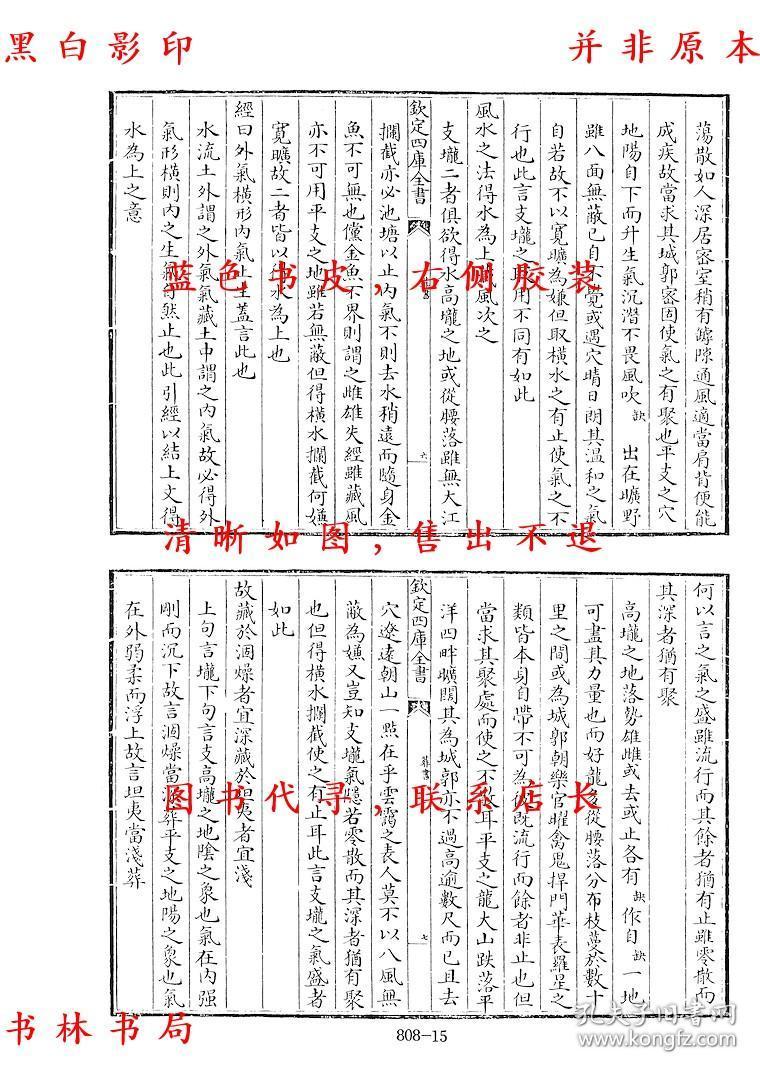 黑白影印
并非原本
蕩散如人深居密室稍有罅隙通風適當肩背便能
成疾故當求其城郭密固使氣之有聚也平支之穴
地陽自下而升生氣沉潛不畏風吹缺 出在曠野
雖八面無蔽已自不覺或遇穴晴日朗其温和之氣
自若故不以寬曠為嫌但取橫水之有止使氣之不
行也此言支壠之取用不同有如此
風水之法得水為上藏風次之
支壠二者俱欲得水高壠之地或從腰落雖無大江
欽定四庫全書
葬書
六
攔截亦必池塘以止內氣不則去水稍遠而隨身金
魚不可無也儻金魚不界則謂之雌雄失經雖藏風
亦不可用平支之地雖若無蔽但得橫水攔截何嫌
寛曠故二者皆以得水為上也
經曰外氣橫形內氣止生蓋言此也
水流土外謂之外氣氣藏土中謂之內氣故必得外
氣形橫則內之生氣自然止也此引經以結上文得
水為上之意
蓝色书皮,右侧胶装
清晰如图,售出不退
何以言之氣之盛雖流行而其餘者猶有止雖零散而
其深者猶有聚
高壠之地落勢雄雌或去或止各有缺 作自缺一地
可盡其力量也而好龍多從腰落分布枝蔓於數十
里之間或為城郭朝樂官曜禽鬼捍門華表羅星之
類皆本身自帶不可為彼既流行而餘者非止也但
當求其聚處而使之不散耳平支之龍大山跌落平
欽定四庫全書
葬書
七
洋四畔曠闊其為城郭亦不過高逾數尺而已且去
穴遼遠朝山一點在乎雲靄之表人莫不以八風無
蔽為嫌又豈知支壠氣隱若零散而其深者猶有聚
也但得橫水攔截使之有止耳此言支壠之氣盛者
如此
故藏於涸燥者宜深藏於坦夷者宜淺
上句言壠下句言支高壠之地陰之象也氣在內强
剛而沉下故言涸燥當深葬平支之地陽之象也氣
在外弱柔而浮上故言坦夷當淺葬
图书代寻,联系店长
808-15
书林书局
孔夫子旧书网